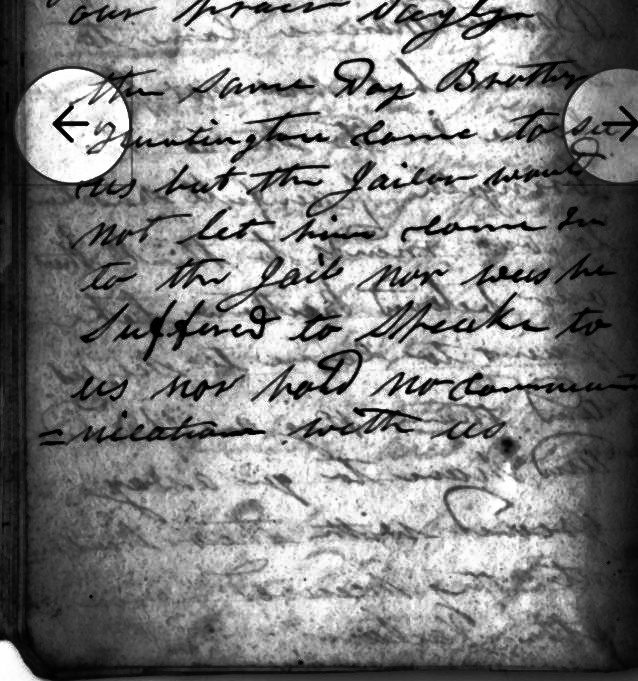 our
the same Day Brother
Huntington came to se
us but the Jailor would
not let him come In
to the Jail nor was he
Suffered to Speake to
us nor hold no commu=
=nication with us